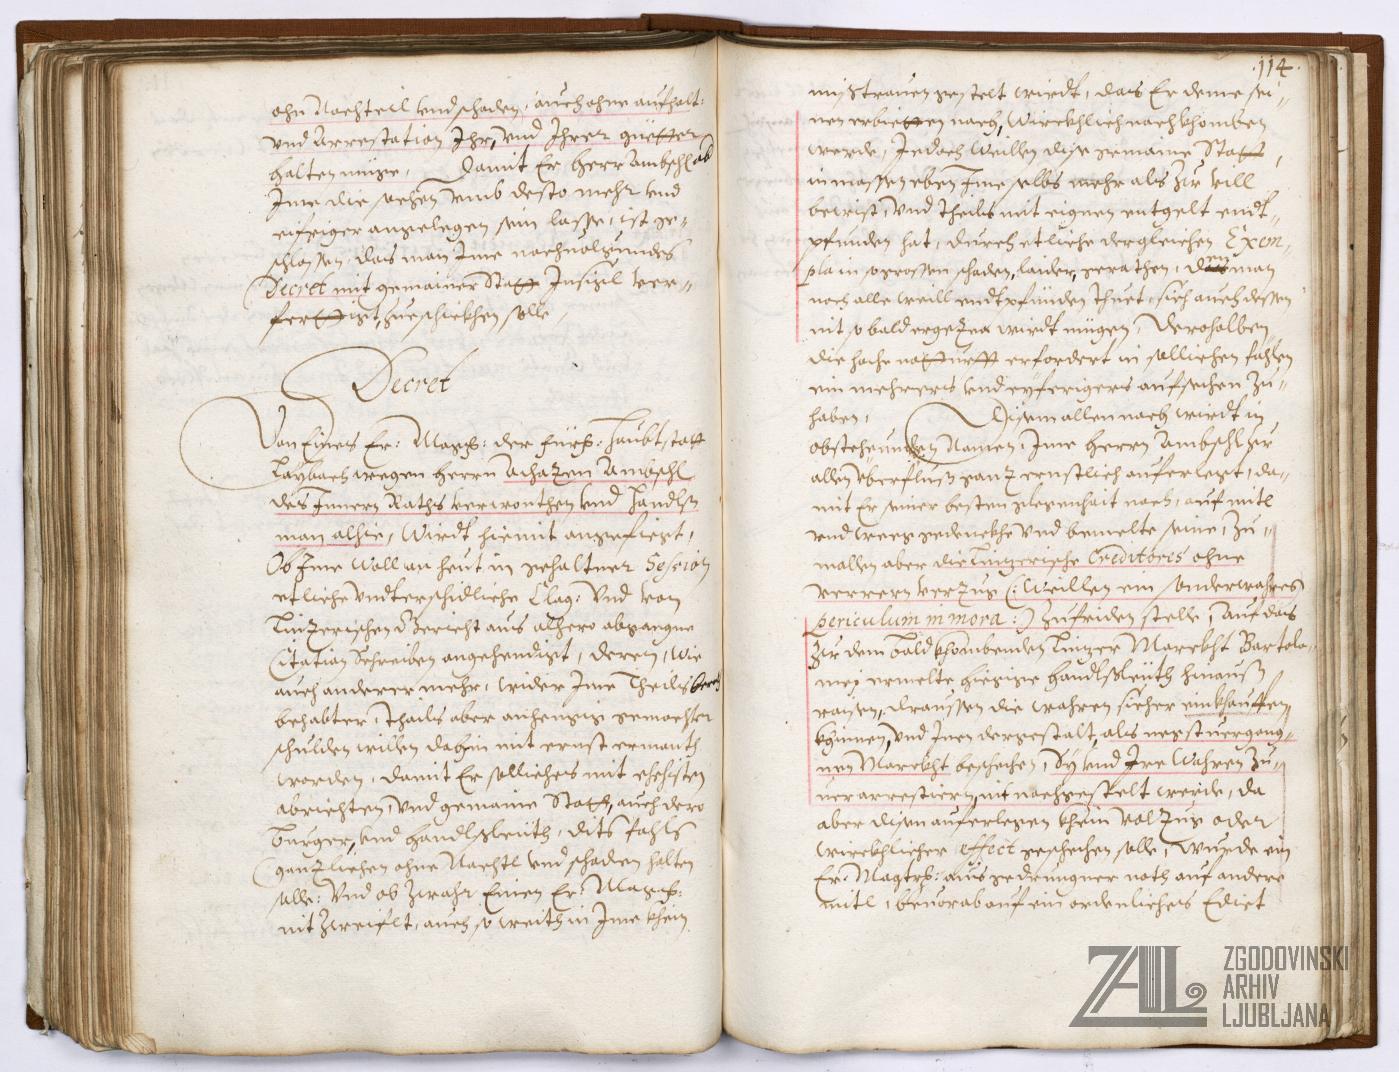 ohn Nachteil vnd schaden, auch ohne aufhalt:
vnd Arrestation Ihr, vnd Ihrer güetter
halten müge, Damit Er Herr Ambschl
Ime die sachen vmb desto mehr vnd
eifriger angelegen sein lasse, ist ge-
schlossen, das man Ime nachuolgundes
Decret mit gemainer Statt Insigl ver-
ferttigt, zueschickhen solle,
Decret
Von Eines Er: Mags: der fürs: Haubtstatt
Laybach wegen Herrn Achazen Ambschl
des Innern Raths verwonthen vnd Handls
man alhie, Wirdt hiemit angefiegt,
Ob Ime woll an heut in gehaltner Session
etliche vndterschidliche Clag: vnd von
Linzerischen Gericht aus alhero abgangne
Citation Schreiben angehendigt, deren, wie
auch anderer mehr, wider Ime Theils
behabter, thails aber anhengig gemachter
schulden willen dahin mit ernst ermant
worden, damit Er solliches mit ehisten
abrichten, vnd gemaine Statt, auch dero
Burger, vnd Handlsleuth, dits fahls
gantzlichen ohne Nachtl vnd schaden halten
solle: Vnd ob zwahr Einen Er: Mags:
nit zweiflt, auch so weith in Ime khein
114.
misstrauen gestelt wirdt, das Er deme sei-
nen erbietten nach, Wirckhlich nachkhomben
werde, Jedoch weillen dise gemaine Statt,
inmassen eben Ime selbs mehr als zur vill
bewist, vnd theils mit eignen entgelt endt-
pfunden hat, durch etliche dergleichen Exem-
pla in so grossen schaden, laider, gerathen, das man
noch alle weill endtpfünden thuet, sich auch dessen
nit so bald ergezen wirdt mügen, Derohalben
die hoche notturfft erfordert in sollichen fählen
ein mehrers vnd eyferigers aufsechen zu-
haben, Disem allem nach wirdt in
obstehunden Namen, Ime Herrn Ambschl zur
allen vberfluss ganz ernstlich auferlegt, da-
mit Er seiner besten glegenhait nach, auf mitl
vnd weeg gedenckhe vnd bemelte seine, zu-
mallen aber die Linzerische Creditores ohne
verrern verzug (: Weillen ein sonderwahres
periculum in mora :) zufriden stelle, Auf das
zur dem bald khombenden Linzer Marckht Bartolo-
mej ermelte hiesige Handlsleuth hinauss
raisen, draussen die wahren sicher einkhauffen
khünnen, vnd Inen dergestalt, als negstuergang-
nen Marckht beschechen, Sy vnd Ire Wahren zu-
uerarrestiern, nit nachgestelt werde, da
aber disen auferlegen khein volzug oder
wirckhlicher effect geschechen solle, wurde ein
Er: Magts: aus gedrungner noth auf andere
mitl, beuorab auf ein ordenliches Edict
ZAL
ZGODOVINSKI
ARHIV
LJUBLJANA